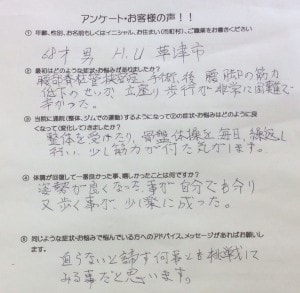 アンケート・お客様の声！！
① 年齢、性別、お名前もしくはイニシャル、お住まい(市町村)、ご職業をお書きください
68才 男 H.U 草津市
② 最初はどのような症状・お悩みがありましたか？
腰部脊柱管狭窄症、手術後 腰 脚の筋力
低下のせいか 立座り 歩行が非常に困難で
辛かった。
③ 当院に通院(整体、ジムでの運動)するようになって②の症状・お悩みはどのように良
くなって(変化して)きましたか？
整体を受けたり、骨盤体操を毎日 繰返し
行い、少し筋力が付た気がします。
④ 体調が回復して一番良かった事、嬉しかったことは何ですか？
姿勢が良くなった事が自分でも分り
又歩く事が少し楽に成った。
⑤ 同じような症状・お悩みで悩んでいる方へのアドバイス、メッセージがあればお願いし
ます。
直らないと諦す何事も挑戦して
みる事だと思います。